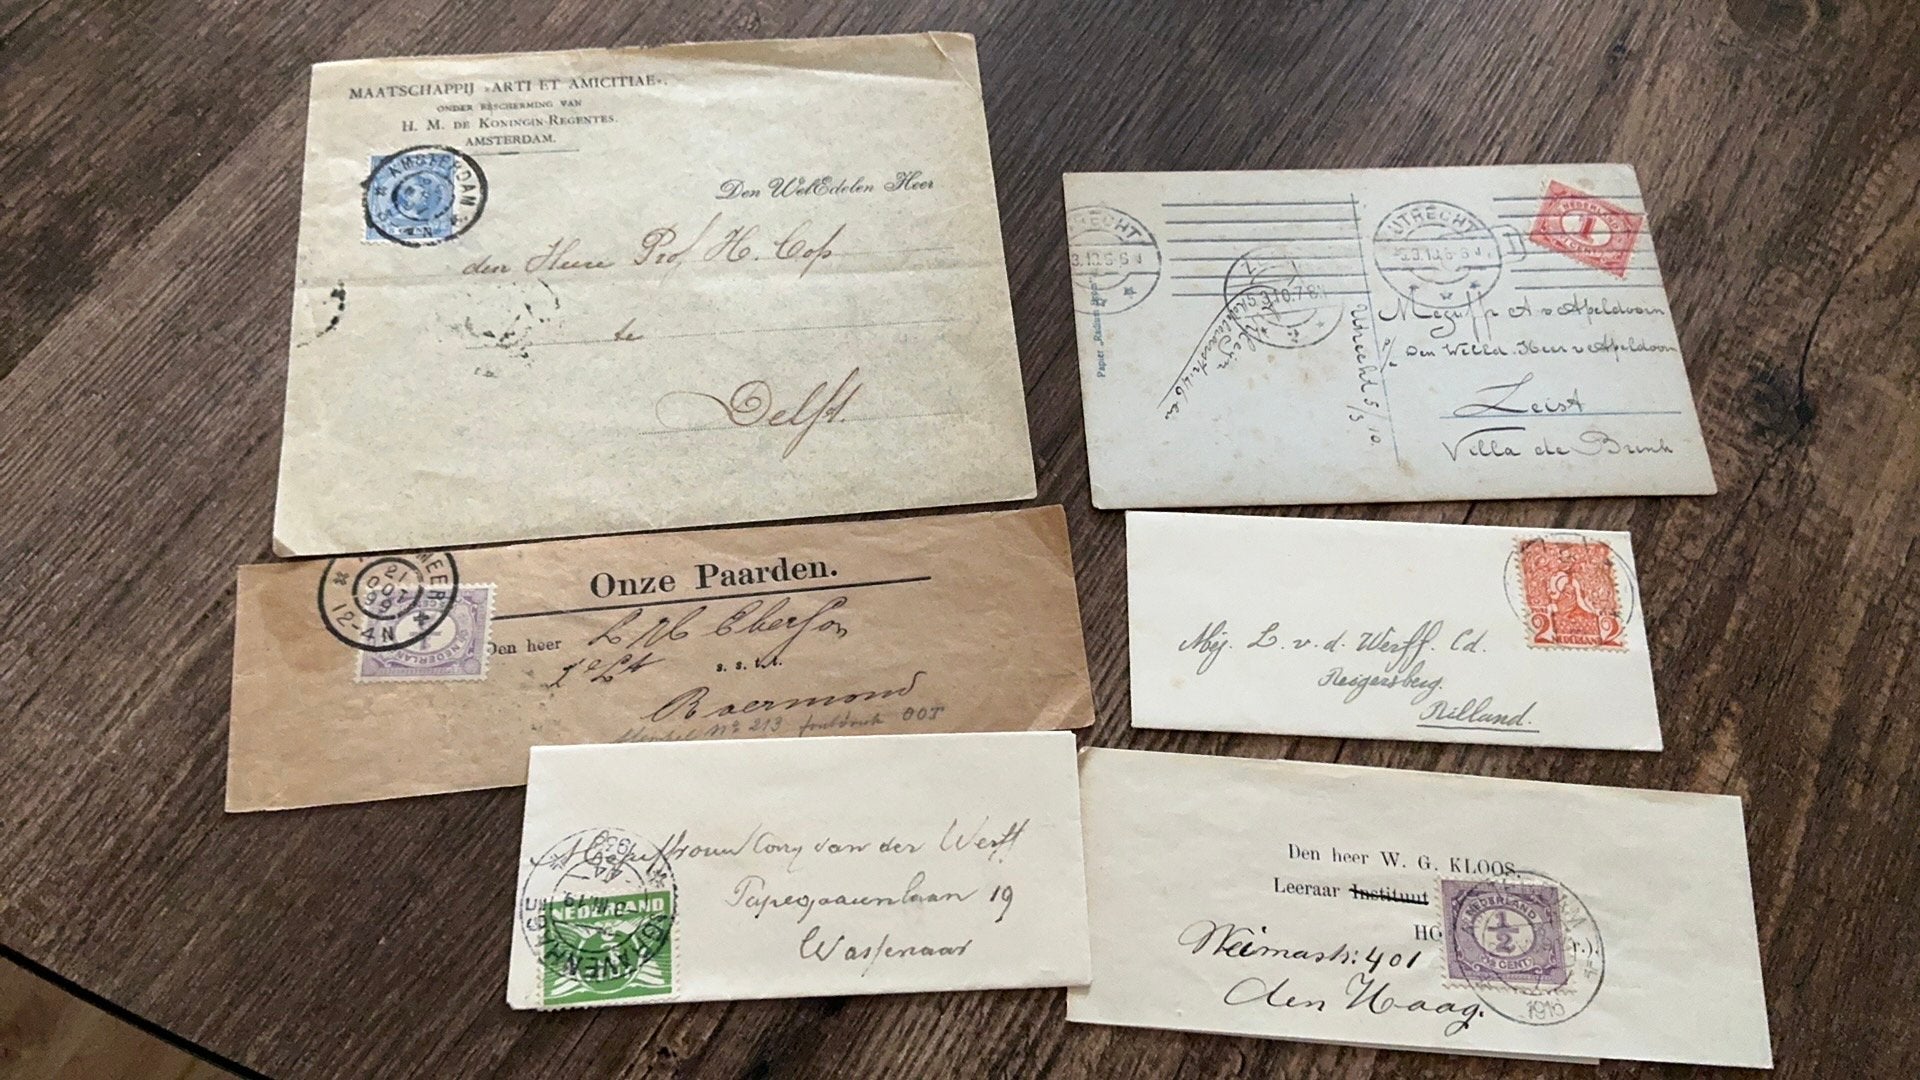 MAATSCHAPPIJ »ARTI ET AMICITIAE«.
ONDER BESCHERMING VAN
H. M. DE KONINGIN-REGENTES.
AMSTERDAM.
AMSTERDAM
Den WelEdelen Heer
den Heere Prof H. Cop
te
Delft.
UTRECHT
UTRECHT
NEDERLAND
1
Papier
Utrecht 5/3 10.
Mejuffr A v Apeldoorn
Den WelEd. Heer v Apeldoorn
Zeist
Villa de Brink
Onze Paarden.
21 OCT
12-4N
NEDERLAND
Den heer
Roermond
2 2
Mej. L. v. d. Werff. Cd.
Reigersberg.
Rilland.
Mejuffrouw Cory van der Werff
Papegaaienlaan 19
Wassenaar
NEDERLAND
'S GRAVENHAGE
1930
Den heer W. G. KLOOS,
Leeraar Instituut
HO
r.).
NEDERLAND
1/2
CENT
1916
Weimarstr: 401
den Haag.